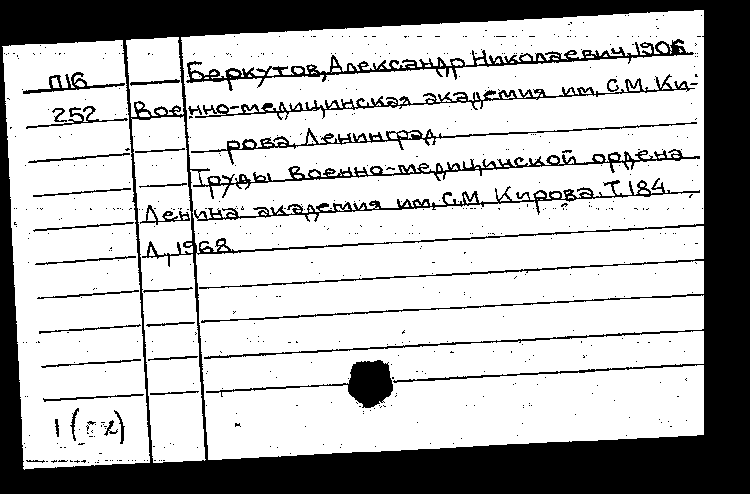 П16 Беркутов, Александр Николаевич, 1906
252 Военно-медицинская академия им. С.М. Ки-
рова, Ленинград.
Труды Военно-медицинской ордена
Ленина академия им. С.М. Кирова. Т. 184.
Л., 1968
1